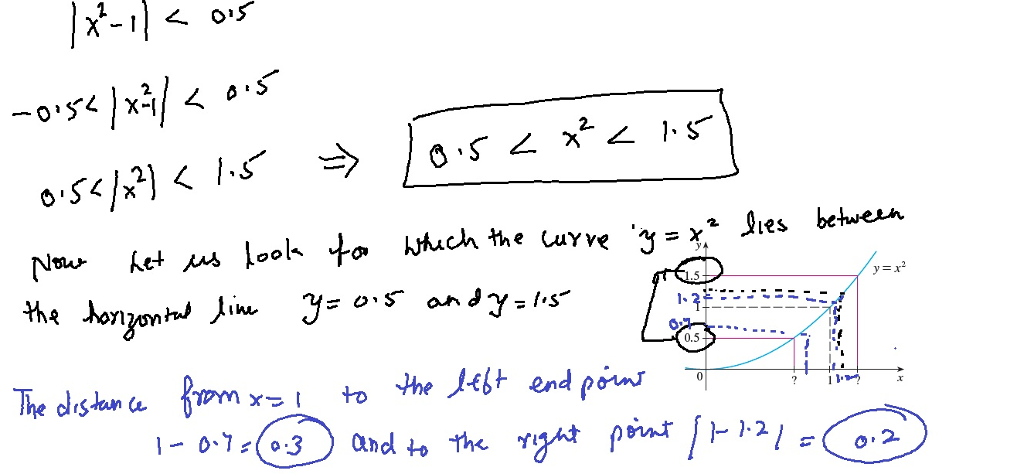 |x²-1| < 0.5
-0.5< |x²-1| < 0.5
0.5<|x²| < 1.5 ⇒ 0.5 < x² < 1.5
Now Let us look for which the curve y = x² lies between
the horizontal line y = 0.5 and y = 1.5
y
y = x²
1.5
1.2
1
0.7
0.5
0 ? ? x
The distance from x = 1 to the left end point
1 - 0.7 = 0.3 and to the right point |1-1.2| = 0.2